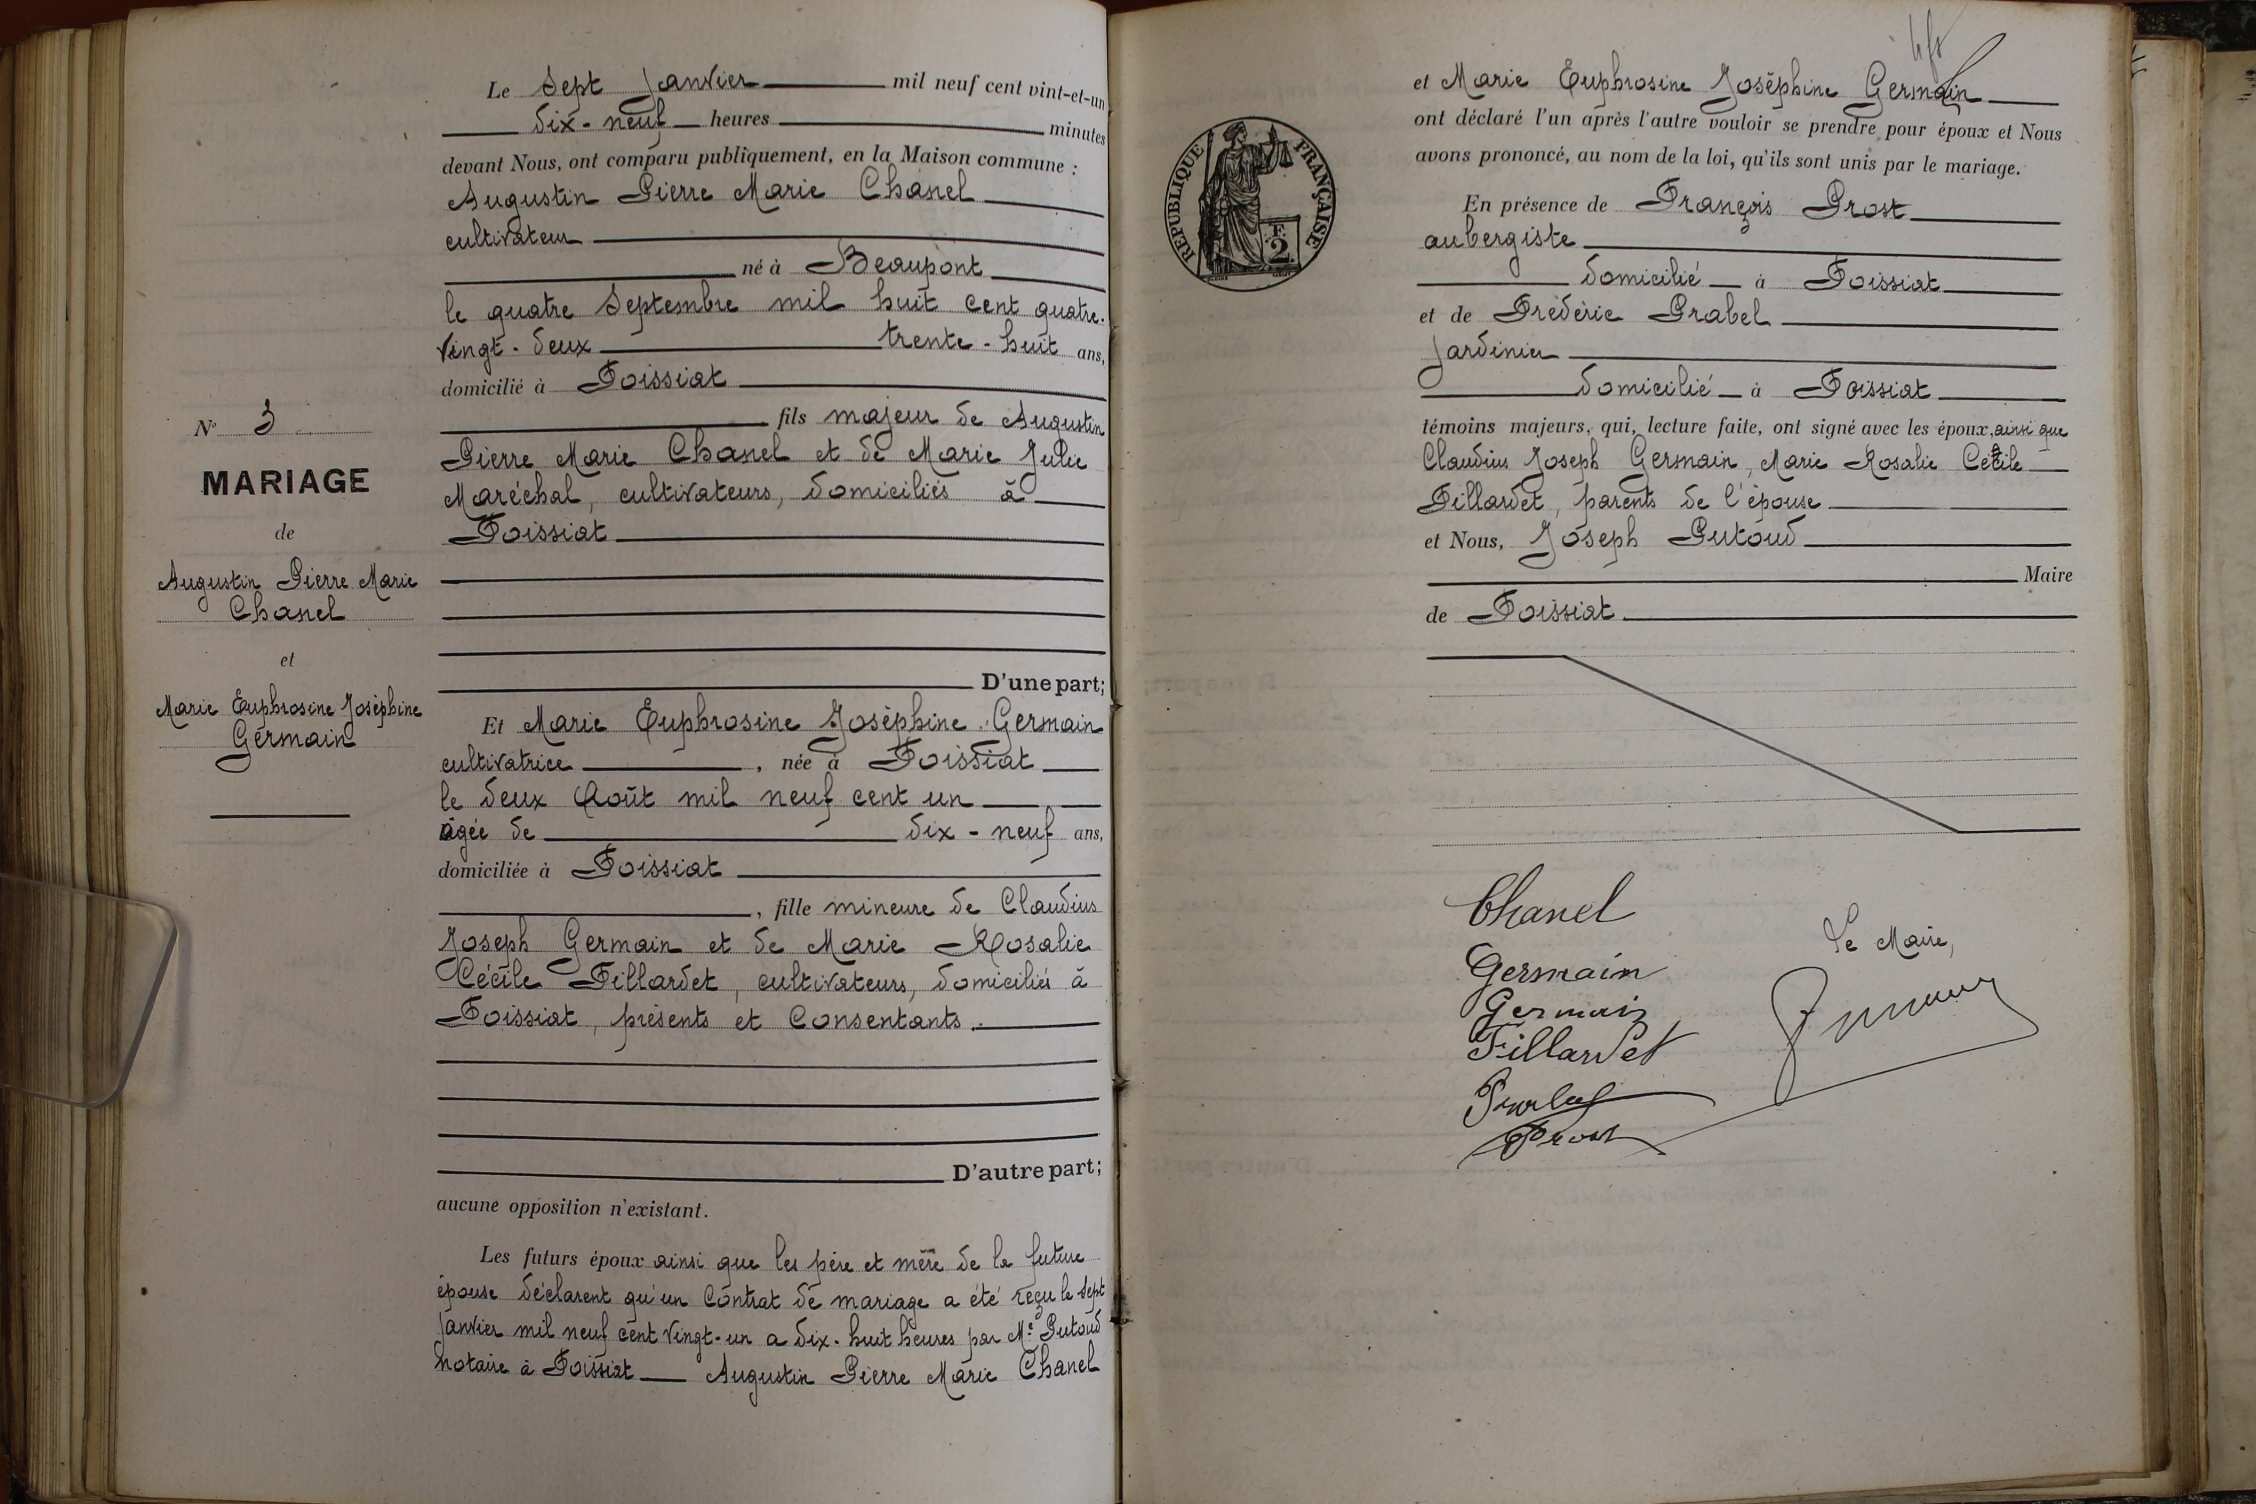 Le sept Janvier mil neuf cent vint-et-un
dix-neuf heures minutes
devant Nous, ont comparu publiquement, en la Maison commune :
Augustin Pierre Marie Chanel
cultivateur
né à Beaupont
le quatre Septembre mil huit cent quatre-
vingt-deux trente-huit ans,
domicilié à Foissiat
fils majeur de Augustin
Pierre Marie Chanel et de Marie Julie
Maréchal, cultivateurs, domiciliés à
Foissiat
D'une part;
N° 3
MARIAGE
de
Augustin Pierre Marie
Chanel
et
Marie Euphrosine Joséphine
Germain
Et Marie Euphrosine Joséphine Germain
cultivatrice, née à Foissiat
le deux Août mil neuf cent un
âgée de dix-neuf ans,
domiciliée à Foissiat
, fille mineure de Claudius
Joseph Germain et de Marie Rosalie
Cécile Fillardet, cultivateurs, domiciliés à
Foissiat, présents et consentants.
D'autre part;
aucune opposition n'existant.
Les futurs époux ainsi que les père et mère de la future
épouse déclarent qu'un contrat de mariage a été reçu le sept
Janvier mil neuf cent vingt-un a dix-huit heures par Me Putoud
notaire à Foissiat Augustin Pierre Marie Chanel
et Marie Euphrosine Joséphine Germain
ont déclaré l'un après l'autre vouloir se prendre pour époux et Nous
avons prononcé, au nom de la loi, qu'ils sont unis par le mariage.
RÉPUBLIQUE FRANÇAISE
F.
2
En présence de François Prost
aubergiste
domicilié à Foissiat
et de Frédéric Prabel
Jardinier
domicilié à Foissiat
témoins majeurs, qui, lecture faite, ont signé avec les époux, ainsi que
Claudius Joseph Germain, Marie Rosalie Cécile
Fillardet, parents de l'épouse
et Nous, Joseph Putoud
Maire
de Foissiat
Chanel
Le Maire,
Germain
Germain
Fillardet
Prost